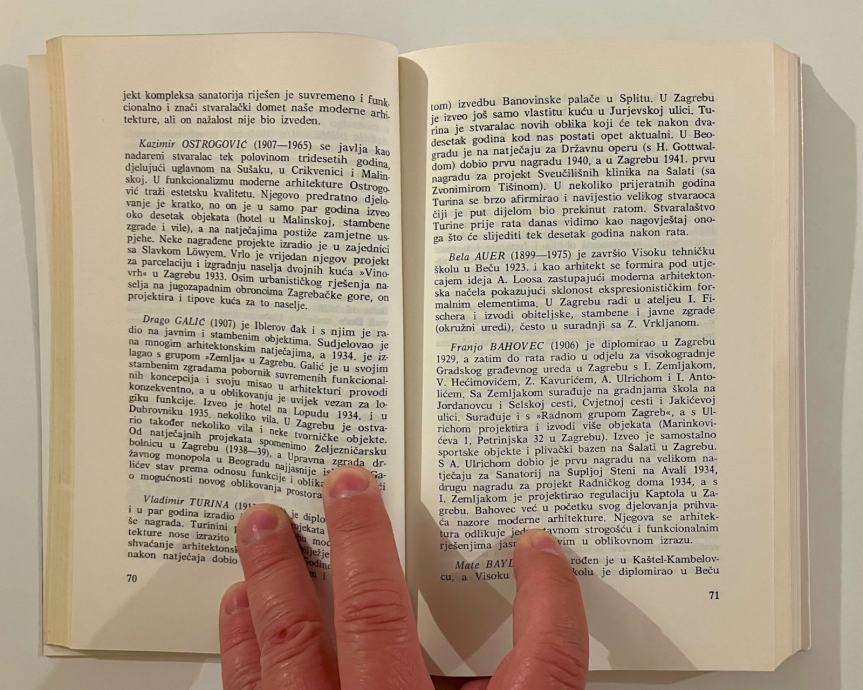 jekt kompleksa sanatorija riješen je suvremeno i funk-
cionalno i znači stvaralački domet naše moderne arhi-
tekture, ali on nažalost nije bio izveden.
Kazimir OSTROGOVIĆ (1907—1965) se javlja kao
nadareni stvaralac tek polovinom tridesetih godina,
djelujući uglavnom na Sušaku, u Crikvenici i Malin-
skoj. U funkcionalizmu moderne arhitekture Ostrogo-
vić traži estetsku kvalitetu. Njegovo predratno djelo-
vanje je kratko, no on je u samo par godina izveo
oko desetak objekata (hotel u Malinskoj, stambene
zgrade i vile), a na natječajima postiže zamjetne us-
pjehe. Neke nagrađene projekte izradio je u zajednici
sa Slavkom Löwyem. Vrlo je vrijedan njegov projekt
za parcelaciju i izgradnju naselja dvojnih kuća »Vino-
vrh« u Zagrebu 1933. Osim urbanističkog rješenja na-
selja na jugozapadnim obroncima Zagrebačke gore, on
projektira i tipove kuća za to naselje.
Drago GALIĆ (1907) je Iblerov đak i s njim je ra-
dio na javnim i stambenim objektima. Sudjelovao je
na mnogim arhitektonskim natječajima, a 1934. je iz-
lagao s grupom »Zemlja« u Zagrebu. Galić je u svojim
stambenim zgradama pobornik suvremenih funkcional-
nih koncepcija i svoju misao u arhitekturi provodi
konzekventno, a u oblikovanju je uvijek vezan za lo-
giku funkcije. Izveo je hotel na Lopudu 1934. i u
Dubrovniku 1935. nekoliko vila. U Zagrebu je ostva-
rio također nekoliko vila i neke tvorničke objekte.
Od natječajnih projekata spomenimo Željezničarsku
bolnicu u Zagrebu (1938—39), a Upravna zgrada dr-
žavnog monopola u Beogradu najjasnije Ga-
lićev stav prema odnosu funkcije i
o mogućnosti novog oblikovanja
Vladimir TURINA je
i u par godina izradio
še nagrada. Turinini
tekture nose izrazito
shvaćanje
nakon natječaja dobio
70
tom) izvedbu Banovinske palače u Splitu. U Zagrebu
je izveo još samo vlastitu kuću u Jurjevskoj ulici. Tu-
rina je stvaralac novih oblika koji će tek nakon dva-
desetak godina kod nas postati opet aktualni. U Beo-
gradu je na natječaju za Državnu operu (s H. Gottwal-
dom) dobio prvu nagradu 1940, a u Zagrebu 1941. prvu
nagradu za projekt Sveučilišnih klinika na Šalati (sa
Zvonimirom Tišinom). U nekoliko prijeratnih godina
Turina se brzo afirmirao i navijestio velikog stvaraoca
čiji je put dijelom bio prekinut ratom. Stvaralaštvo
Turine prije rata danas vidimo kao nagovještaj ono-
ga što će slijediti tek desetak godina nakon rata.
Bela AUER (1899—1975) je završio Visoku tehničku
školu u Beču 1923. i kao arhitekt se formira pod utje-
cajem ideja A. Loosa zastupajući moderna arhitekton-
ska načela pokazujući sklonost ekspresionističkim for-
malnim elementima. U Zagrebu radi u ateljeu I. Fi-
schera i izvodi obiteljske, stambene i javne zgrade
(okružni uredi), često u suradnji sa Z. Vrkljanom.
Franjo BAHOVEC (1906) je diplomirao u Zagrebu
1929, a zatim do rata radio u odjelu za visokogradnje
Gradskog građevnog ureda u Zagrebu s I. Zemljakom,
V. Hećimovićem, Z. Kavurićem, A. Ulrichom i I. Anto-
lićem. Sa Zemljakom surađuje na gradnjama škola na
Jordanovcu i Selskoj cesti, Cvjetnoj cesti i Jakićevoj
ulici. Surađuje i s »Radnom grupom Zagreb«, a s Ul-
richom projektira i izvodi više objekata (Marinkovi-
ćeva 1, Petrinjska 32 u Zagrebu). Izveo je samostalno
sportske objekte i plivački bazen na Šalati u Zagrebu.
S A. Ulrichom dobio je prvu nagradu na velikom na-
tječaju za Sanatorij na Šupljoj Steni na Avali 1934,
drugu nagradu za projekt Radničkog doma 1934, a s
I. Zemljakom je projektirao regulaciju Kaptola u Za-
grebu. Bahovec već u početku svog djelovanja prihva-
ća nazore moderne arhitekture. Njegova se arhitek-
tura odlikuje strogošću i funkcionalnim
rješenjima u oblikovnom izrazu.
Mate rođen je u Kaštel-Kambelov-
cu, a Visoku školu je diplomirao u Beču
71